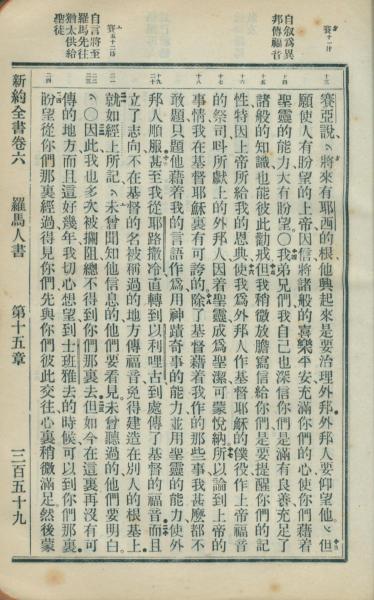 賽十一章十
自叙爲異
邦傳福音
賽五十二章十五
自言將至
羅馬先往
猶太供給
聖徒
十三
賽亞說、將來有耶西的根他興起來是要治理外邦外邦人要仰望他、但
願使人有盼望的上帝因信將諸般的喜樂平安充滿你們的心使你們藉着
十四
聖靈的能力大有盼望〇我弟兄們我自己也深信你們是滿有良善充足了
十五
諸般的知識也能彼此勸戒但我稍微放膽寫信給你們是要提醒你們的記
十六
性特因上帝所給我的恩典使我爲外邦人作基督耶穌的僕役作上帝福音
十七
的祭司呌所獻上的外邦人因着聖靈成爲聖潔可蒙悅納所以論到上帝的
十八
事情我在基督耶穌裏有可誇的除了基督藉着我作的那些事我甚麼都不
敢題只題他藉着我的言語作爲用神蹟奇事的能力並用聖靈的能力使外
十九
邦人順服甚至我從耶路撒冷直轉到以利哩古到處傳了基督的福音而且
立了志向不在基督的名被稱過的地方傳福音免得建造在別人的根基上
就如經上所記、未曾聞知他信息的他們要看見未曾聽過的他們要明白
、〇因此我也多次被攔阻總不得到你們那裏去但如今在這裏再沒有可
傳的地方而且這好幾年我切心想望到士班雅去的時候可以到你們那裏
盼望從你們那裏經過得見你們先與你們彼此交往心裏稍微滿足然後蒙
新約全書卷六　羅馬人書　第十五章　三百五十九